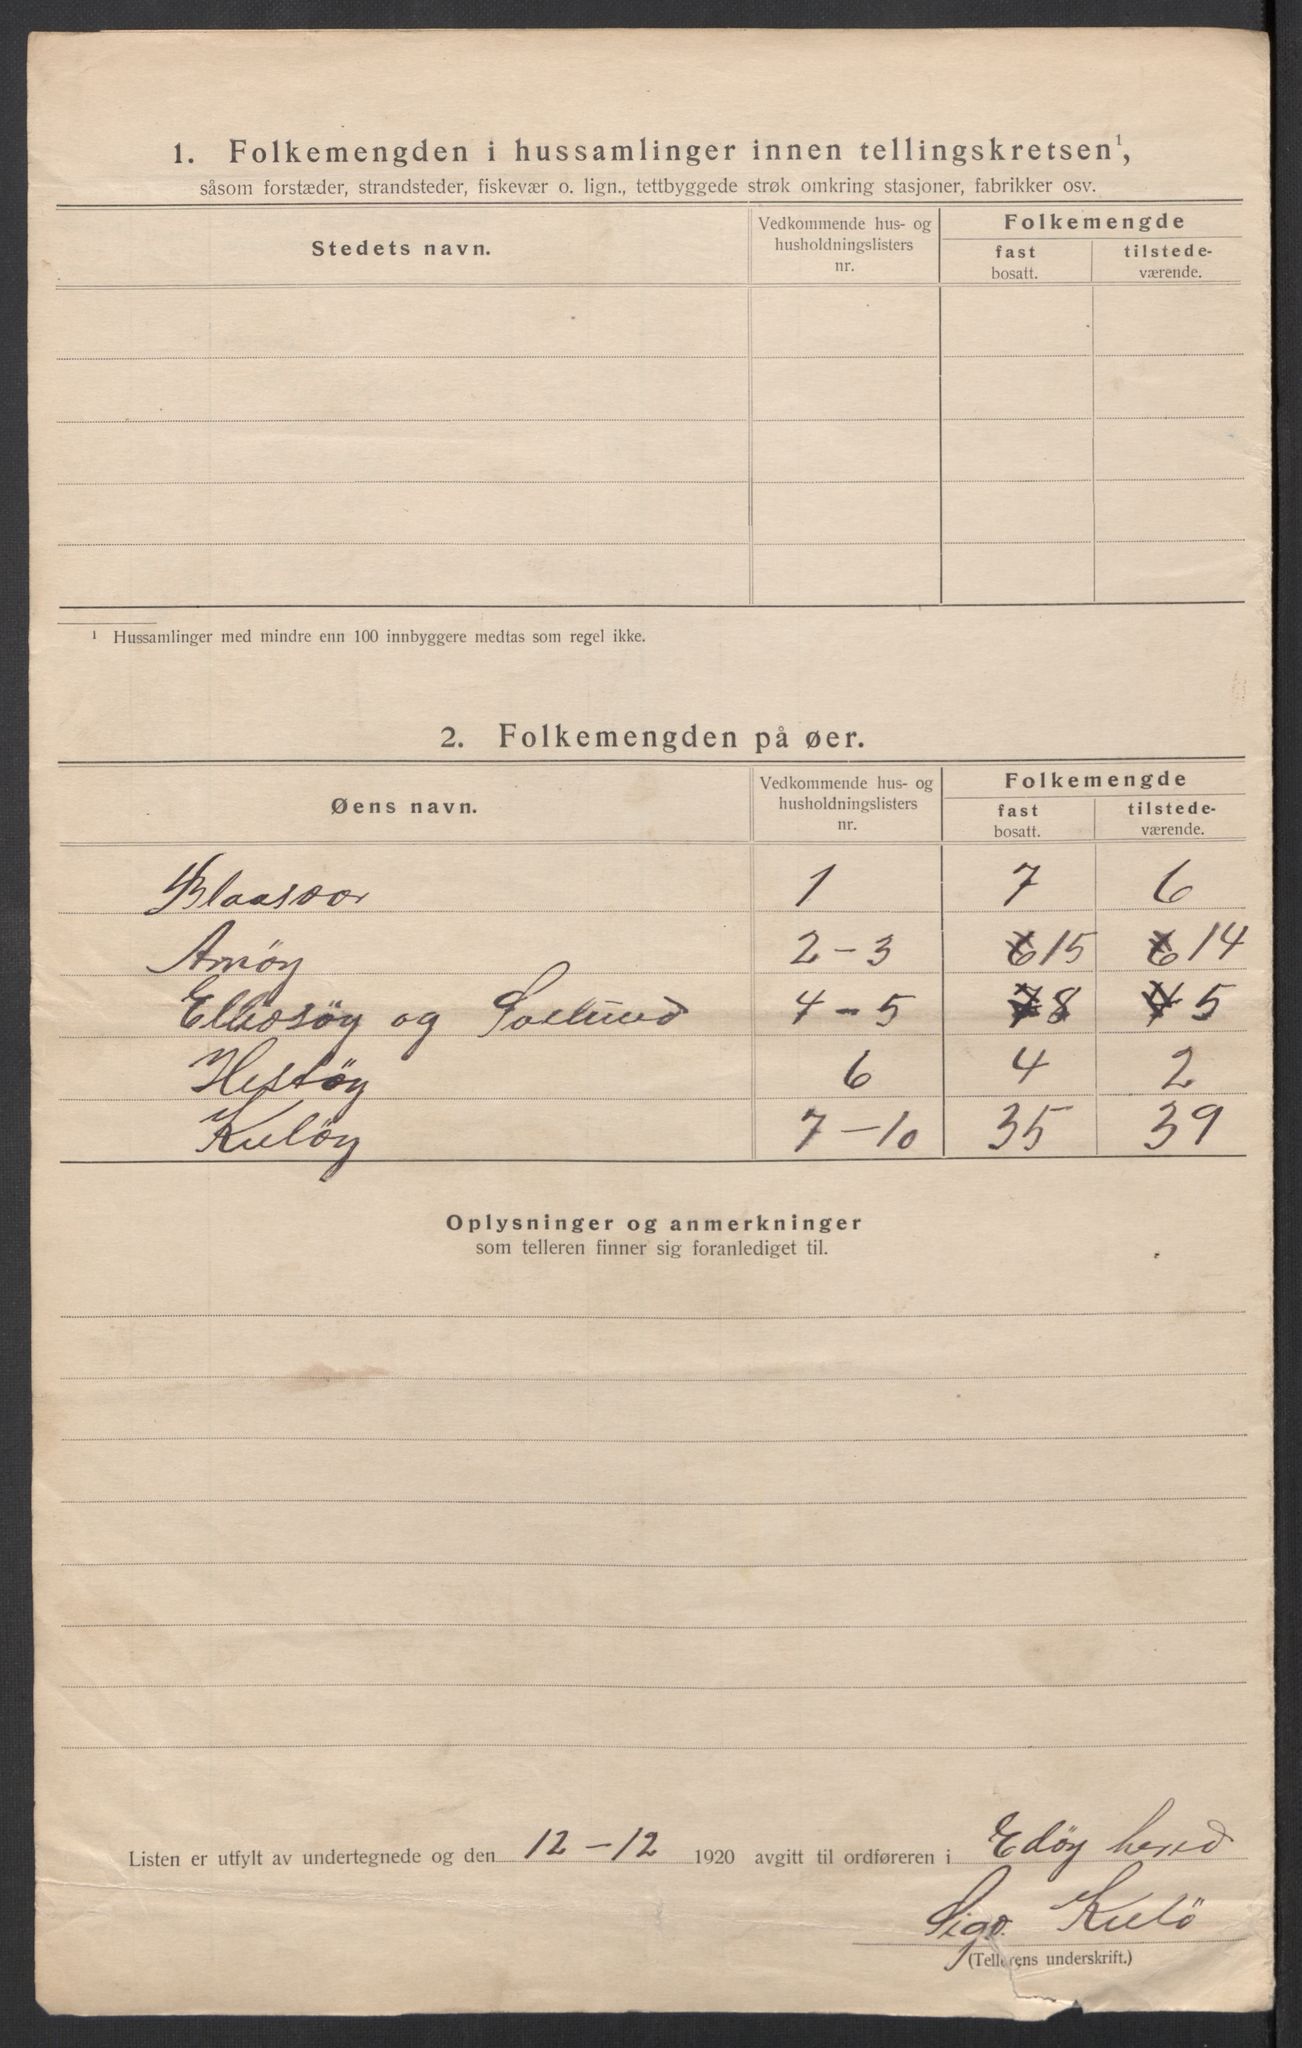 1. Folkemengden i hussamlinger innen tellingskretsen¹,
såsom forstæder, strandsteder, fiskevær o. lign., tettbyggede strøk omkring stasjoner, fabrikker osv.
Stedets navn.
Vedkommende hus- og
husholdningslisters
nr.
Folkemengde
fast
bosatt.
tilstede-
værende.
¹ Hussamlinger med mindre enn 100 innbyggere medtas som regel ikke.
2. Folkemengden på øer.
Øens navn.
Vedkommende hus- og
husholdningslisters
nr.
Folkemengde
fast
bosatt.
tilstede-
værende.
Blaasvær 1 7 6
Arnøy 2-3 6 15 6 14
og 4-5 7 8 4 5
Hestøy 6 4 2
Kuløy 7-10 35 39
Oplysninger og anmerkninger
som telleren finner sig foranlediget til.
Listen er utfylt av undertegnede og den 12-12 1920 avgitt til ordføreren i Edøy hered
Sigv. Kulö
(Tellerens underskrift.)